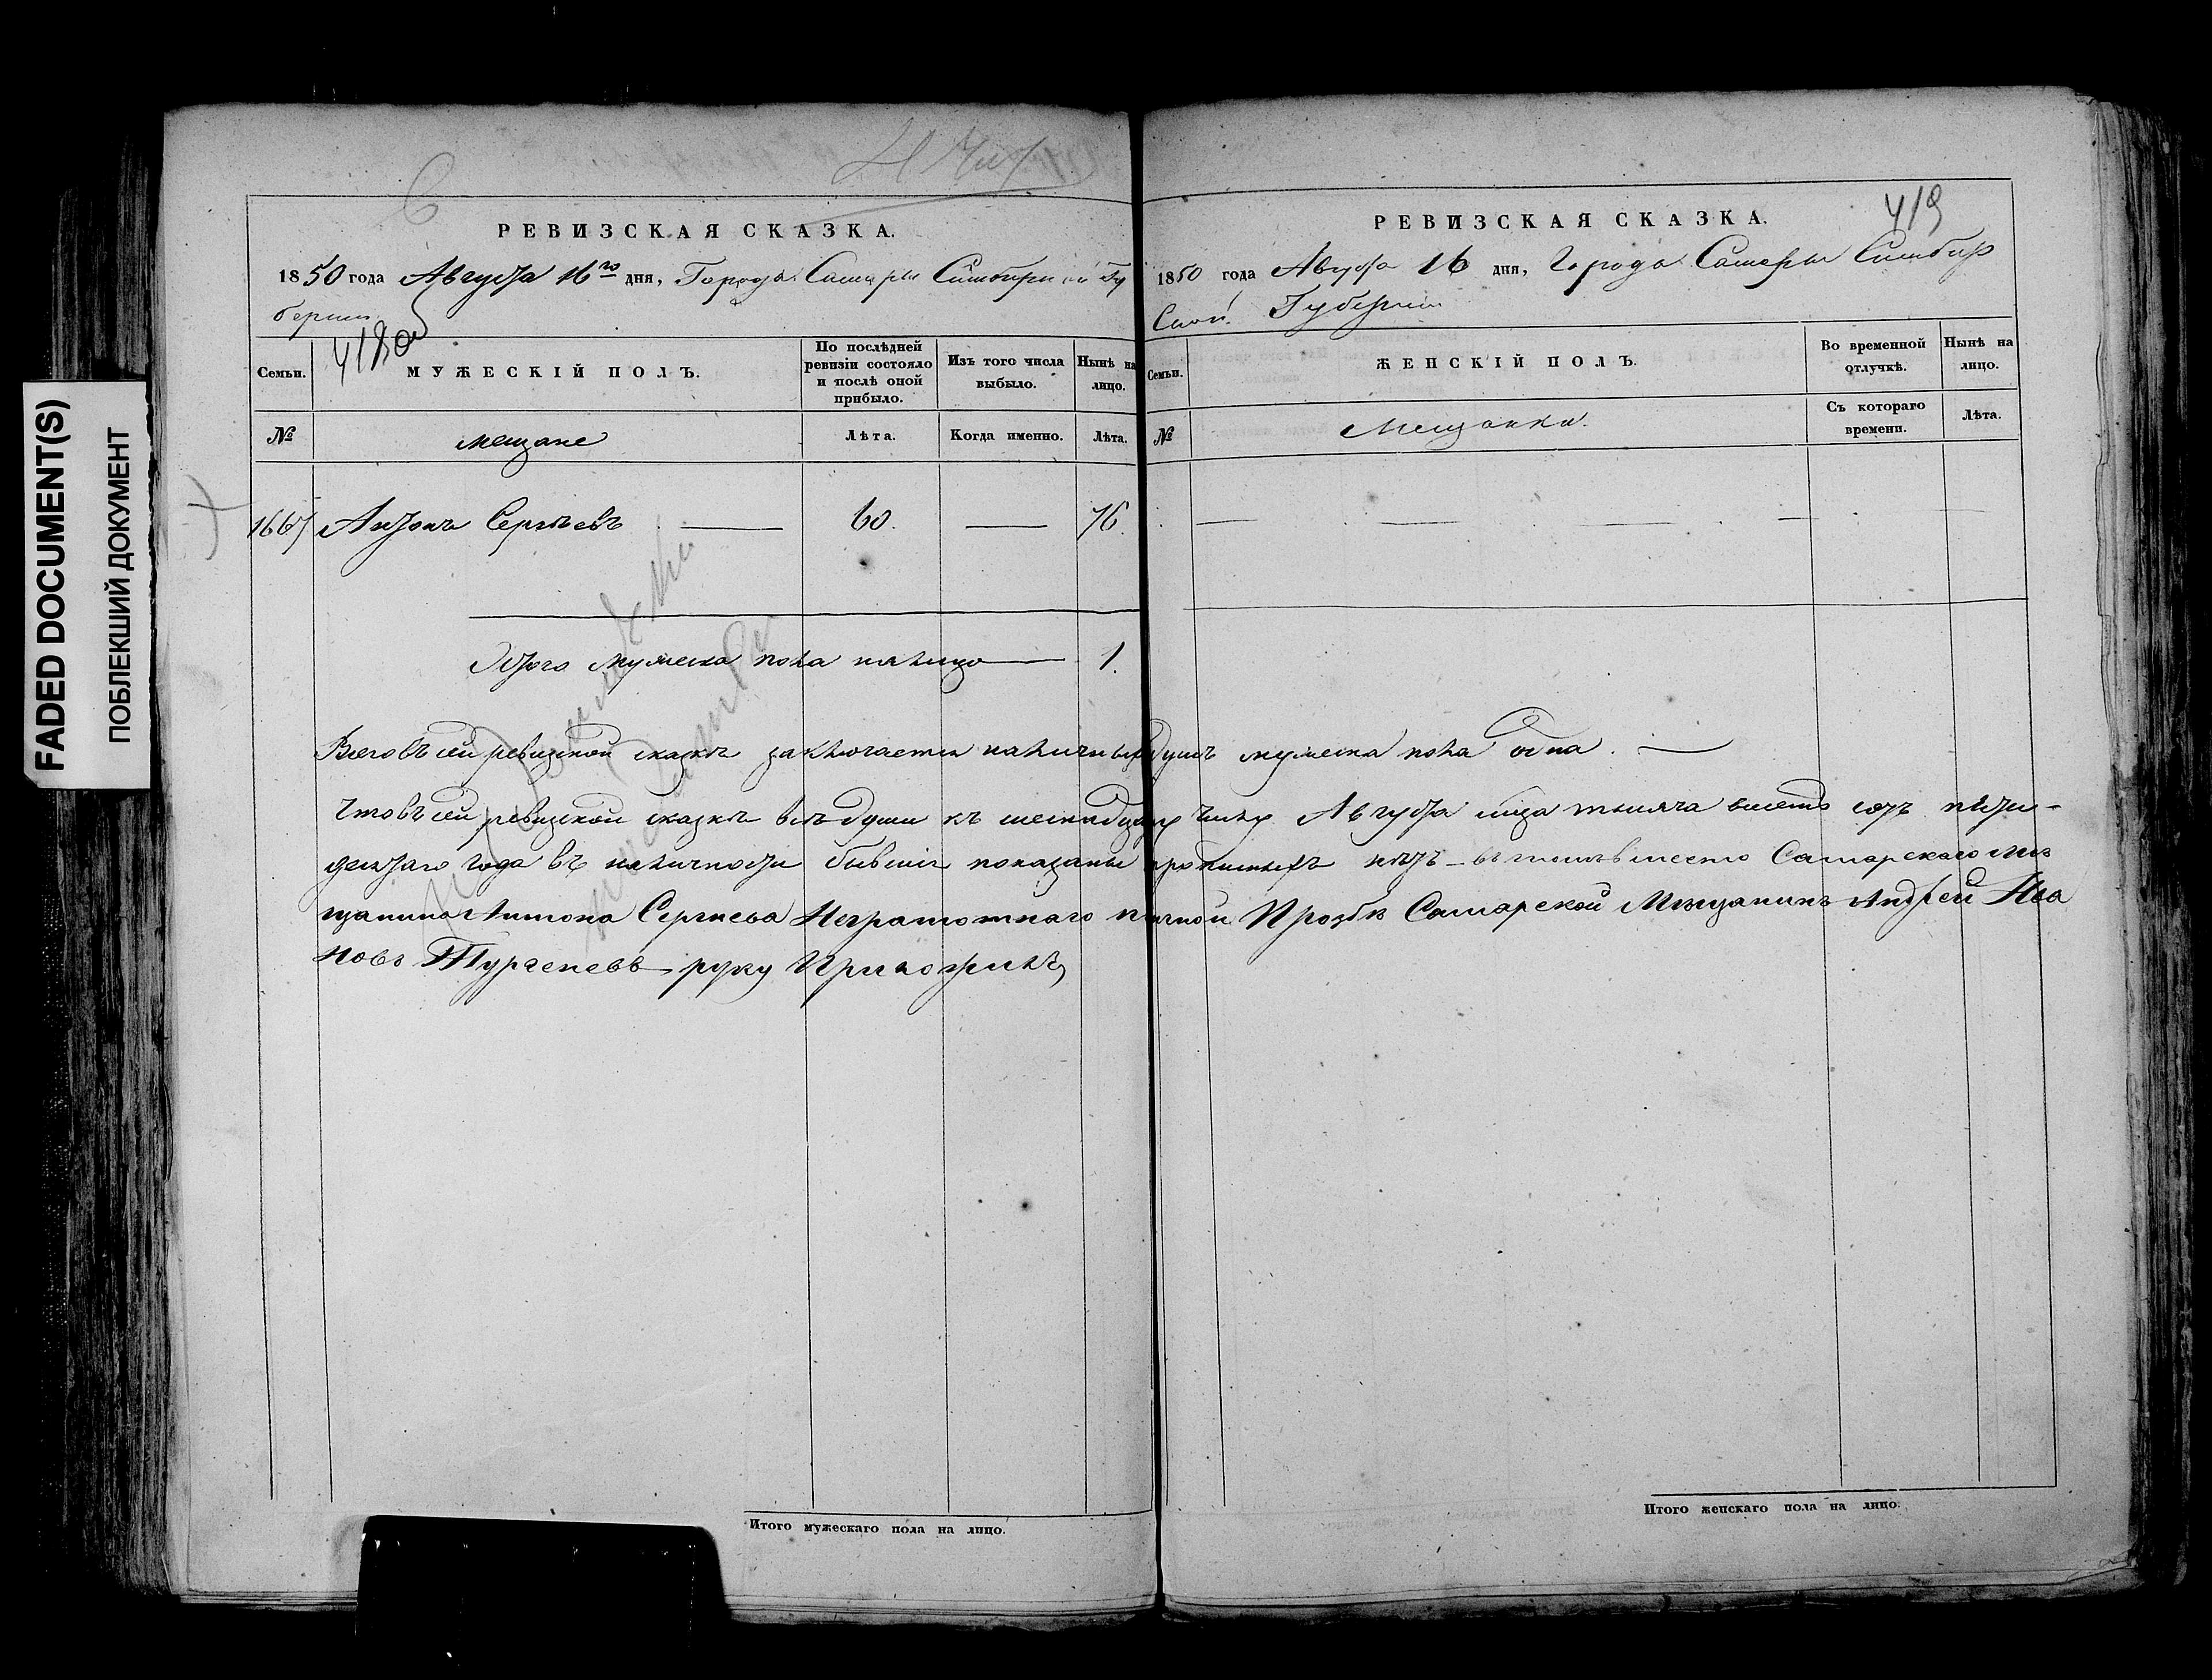 FADED DOCUMENT(S)
ПОБЛЕКШИЙ ДОКУМЕНТ
РЕВИЗСКАЯ СКАЗКА.
1850 года Августа 16го дня, Города Самары Симбирской Гу
берніи
418 об
Семьи.
МУЖЕСКІЙ ПОЛЪ.
По послѣдней ревизіи состояло и послѣ оной прибыло.
Изъ того числа выбыло.
Нынѣ на лицо.
№
мещане
Лѣта.
Когда именно.
Лѣта.
1667 Антонъ Сергѣевъ — 60. — 76.
Итого мужеска пола налицо — 1.
РЕВИЗСКАЯ СКАЗКА.
419
1850 года Августа 16 дня, Города Самары Симбир
ской Губерніи
Семьи.
ЖЕНСКІЙ ПОЛЪ.
Во временной отлучкѣ.
Нынѣ на лицо.
№
Мещанки.
Съ котораго времени.
Лѣта.
Всего въ сей ревизской сказкѣ заключается наличныхъ душъ мужеска пола одна. —
Что въ сей ревизской сказкѣ всѣ души къ шестнадцатому числу Августа мца тысяча восемь сотъ пяти-
десятаго года въ наличности бывшіе показаны прописныхъ нѣтъ – въ томъ вместо Самарскаго ме
щанина Антона Сергиева Неграмотнаго личной Прозбѣ Самарской Мещанинъ Андрей Ива
новъ Тургеневъ руку Приложилъ
Итого мужескаго пола на лицо.
Итого женскаго пола на лицо.